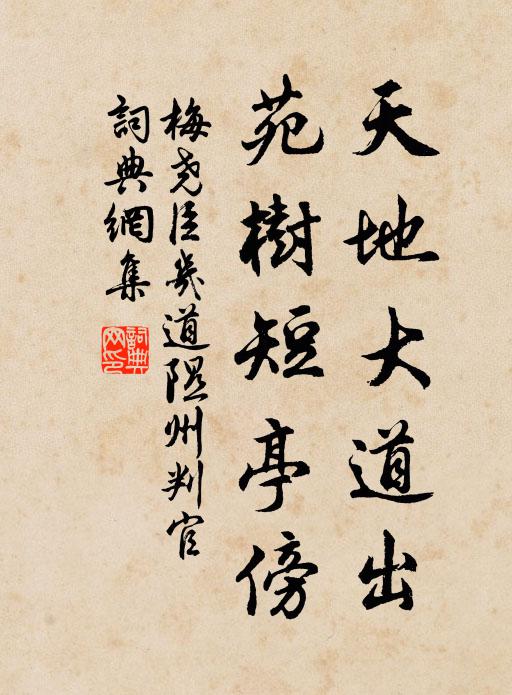 天地大道出
苑樹短亭傍
梅尧臣幾道隰州判官
詞典網集
詞典網印